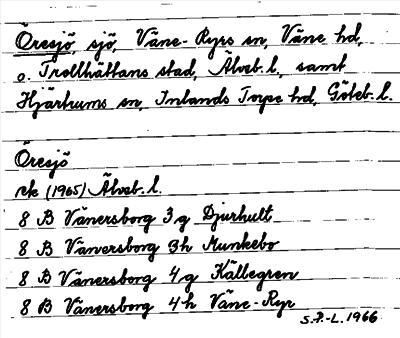 Öresjö, sjö, Väne-Ryrs sn, Väne hd,
o. Trollhättans stad, Älvsb. l., samt
Hjärtums sn, Inlands Torpe hd, Göteb. l.
Öresjö
rek (1965) Älvsb. l.
8 B Vänersborg 3 g Djurhult
8 B Vänersborg 3h Munkebo
8 B Vänersborg 4 g Källegren
8 B Vänersborg 4 h Väne-Ryr
S.P.-L. 1966